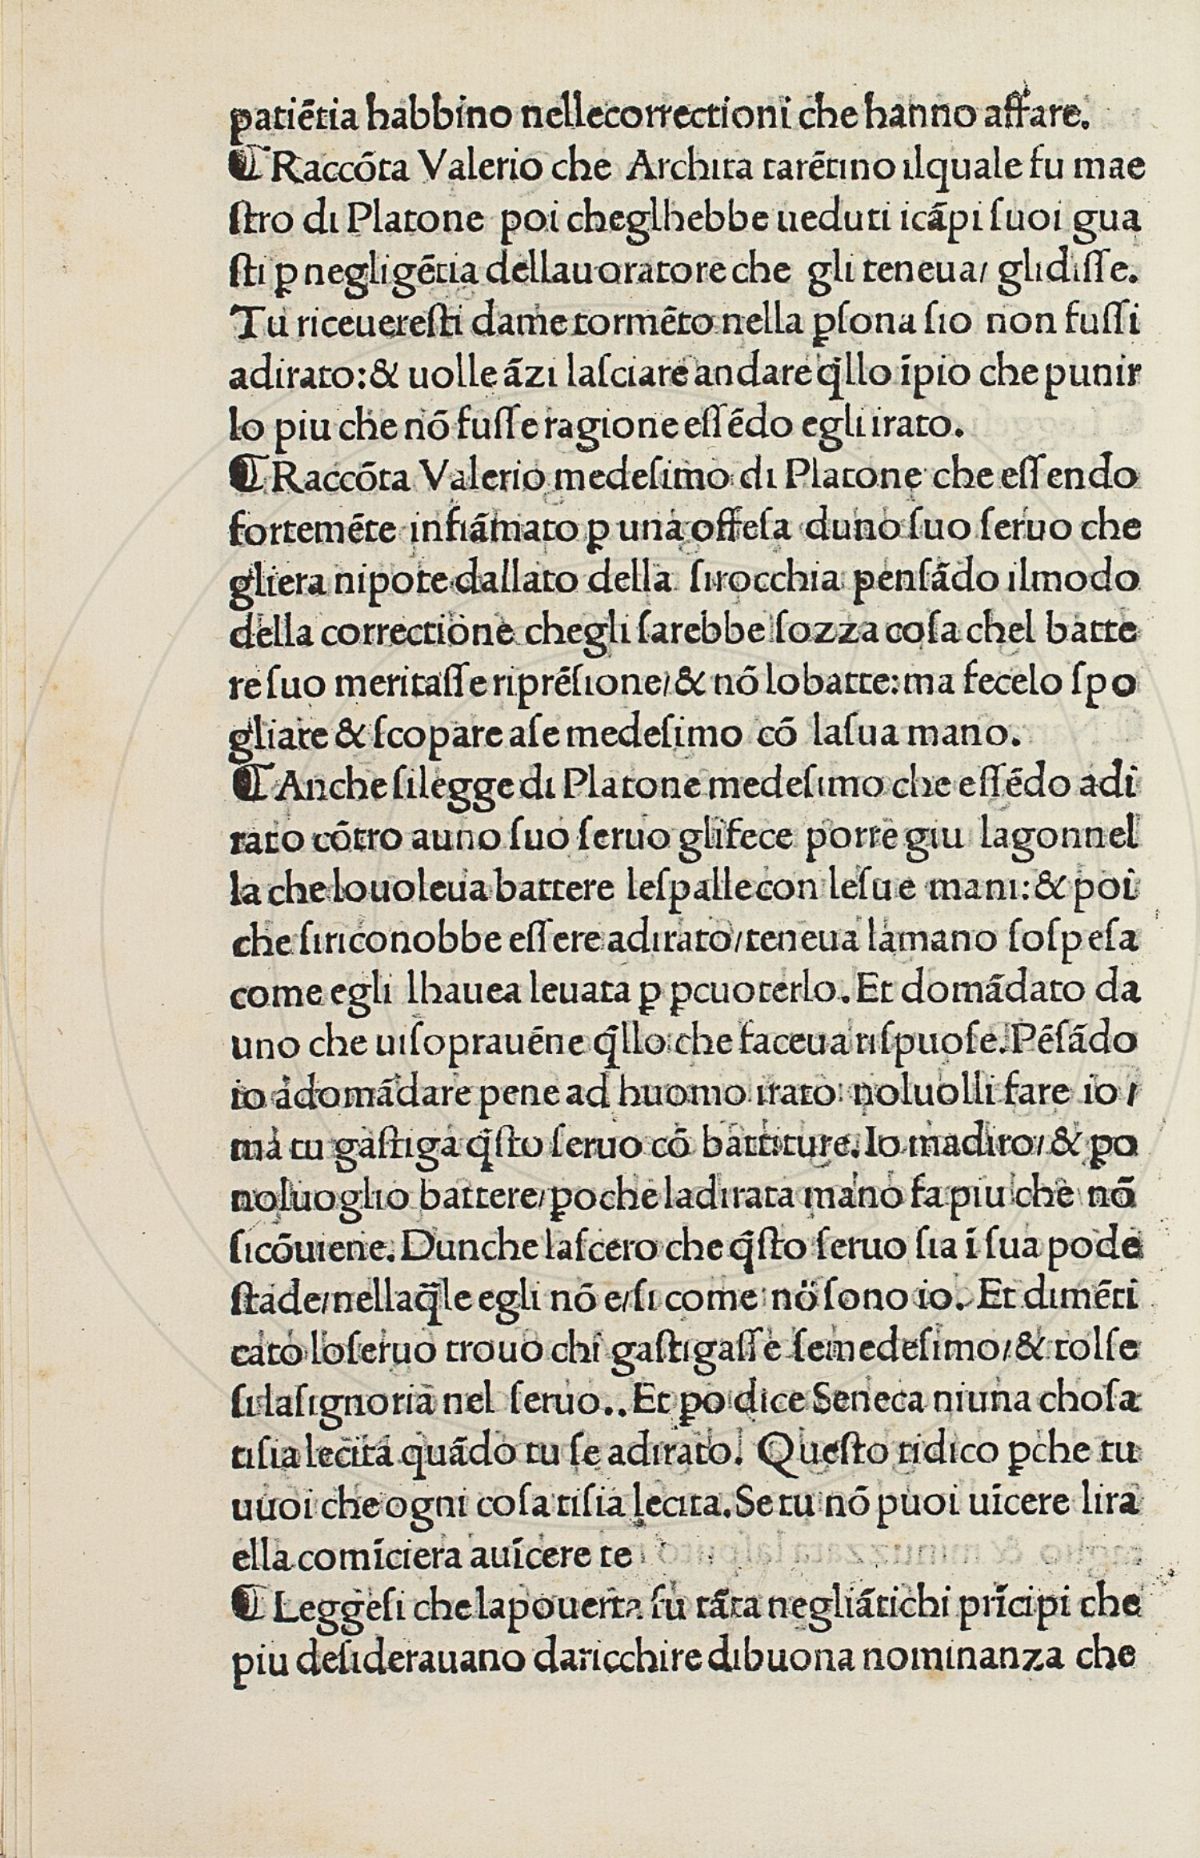 patiētia habbino nellecorrectioni che hanno affare.
⸿ Raccōta Valerio che Archita tarētino ilquale fu mae
ſtro di Platone poi cheglhebbe ueduti icāpi ſuoi gua
ſti ꝑ negligētia dellauoratore che gli teneua/ gli diſſe.
Tu riceuereſti dame tormēto nella ꝑſona ſio non fuſſi
adirato:& uolle āzi laſciare andare q̄llo īpio che punir
lo piu che nō fuſſe ragione eſſēdo egli irato.
⸿ Raccōta Valerio medeſimo di Platone che eſſendo
fortemēte infiāmato ꝑ una offeſa duno ſuo ſeruo che
gliera nipote dallato della ſirocchia penſādo ilmodo
della correctione chegli ſarebbe ſozza coſa chel batte
re ſuo meritaſſe riprēſione/& nō lobatte:ma fecelo ſpo
gliare & ſcopare aſe medeſimo cō laſua mano.
⸿ Anche ſilegge di Platone medeſimo che eſſēdo adi
rato cōtro auno ſuo ſeruo gli fece porre giu lagonnel
la che louoleua battere leſpalle con leſue mani:& poi
che ſiriconobbe eſſere adirato/teneua lamano ſoſpeſa
come egli lhauea leuata ꝑ ꝑcuoterlo. Et domādato da
uno che uiſoprauēne q̄llo che faceua riſpuoſe. Pēſādo
io adomādare pene ad huomo irato noluolli fare io /
ma tu gaſtiga q̄ſto ſeruo cō battiture. Io madiro/& ꝑo
noluoglio battere/ꝑoche ladirata mano fa piu che nō
ſicōuiene. Dunche laſcero che q̄ſto ſeruo ſia ī ſua pode
ſtade/nellaq̄le egli nō e/ſi come nō ſono io. Et dimēti
cato loſeruo trouo chi gaſtigaſſe ſemedeſimo/& tolſe
ſi laſignoria nel ſeruo.. Et ꝑo dice Seneca niuna choſa
tiſia lecita quādo tu ſe adirato. Queſto tidico ꝑche tu
uuoi che ogni coſa tiſia lecita. Se tu nō puoi uīcere lira
ella comīciera auīcere te
⸿ Leggeſi che lapouerta fu tāta negliātichi prīcipi che
piu deſiderauano daricchire dibuona nominanza che